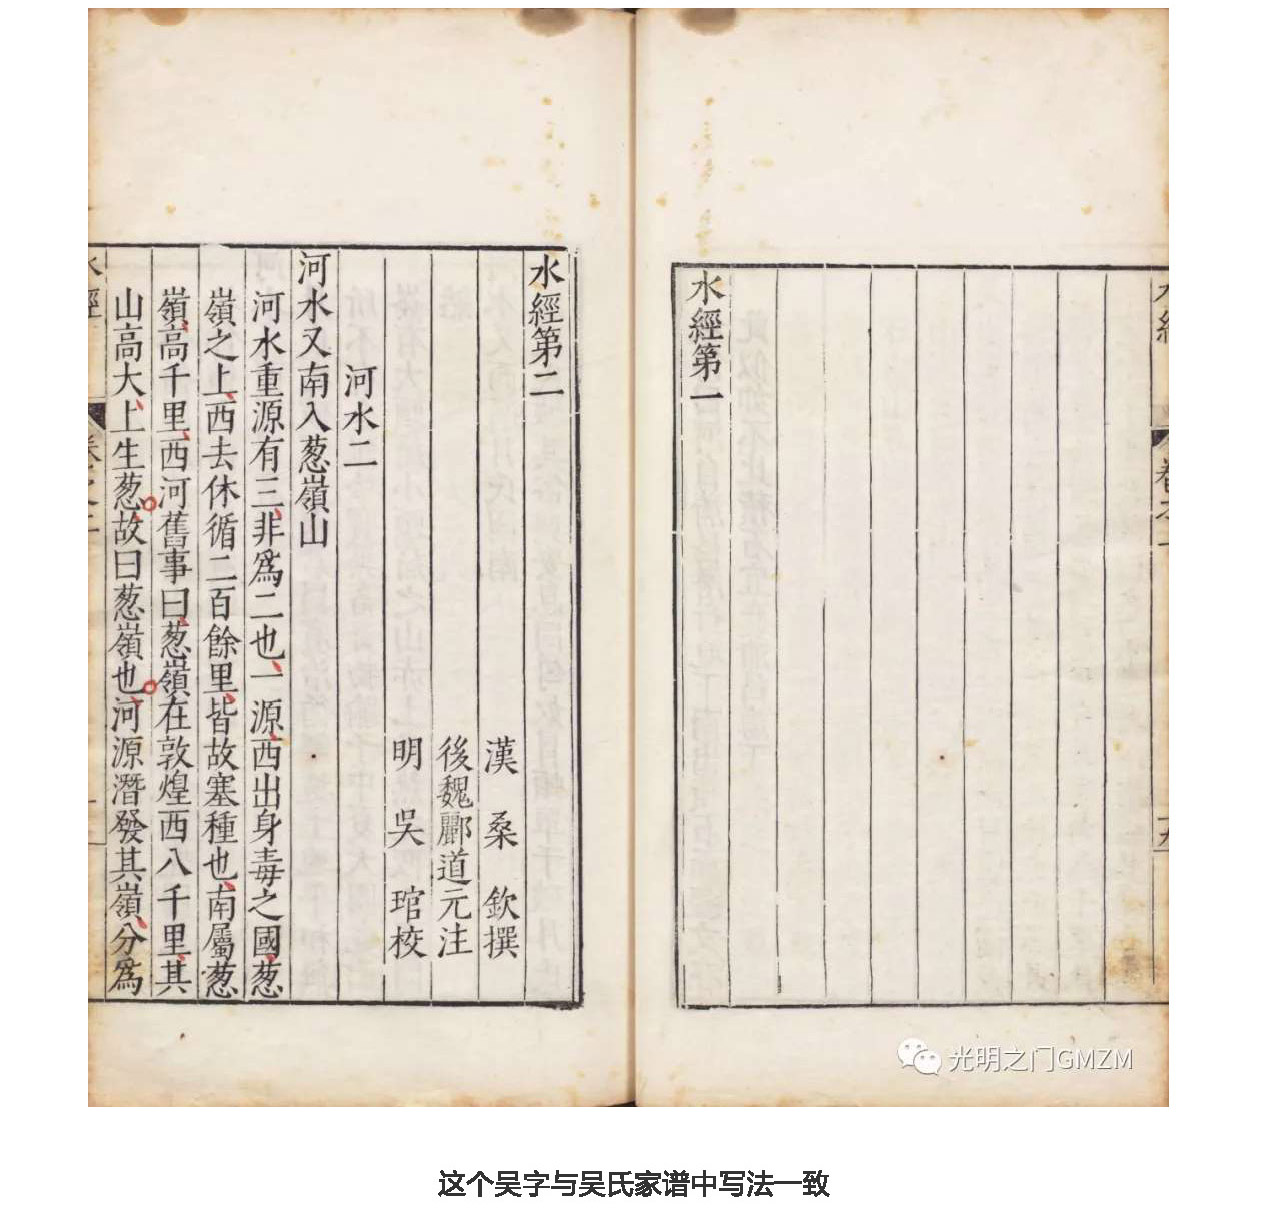 水經第一
水經第二
漢 桑 欽撰
後魏酈道元注
明 吳 琯校
河水二
河水又南入葱嶺山
河水重源有三非爲二也一源西出身毒之國葱
嶺之上西去休循二百餘里皆故塞種也南屬葱
嶺高千里西河舊事曰葱嶺在敦煌西八千里其
山高大上生葱故曰葱嶺也河源潛發其嶺分爲
光明之门GMZM
这个吴字与吴氏家谱中写法一致